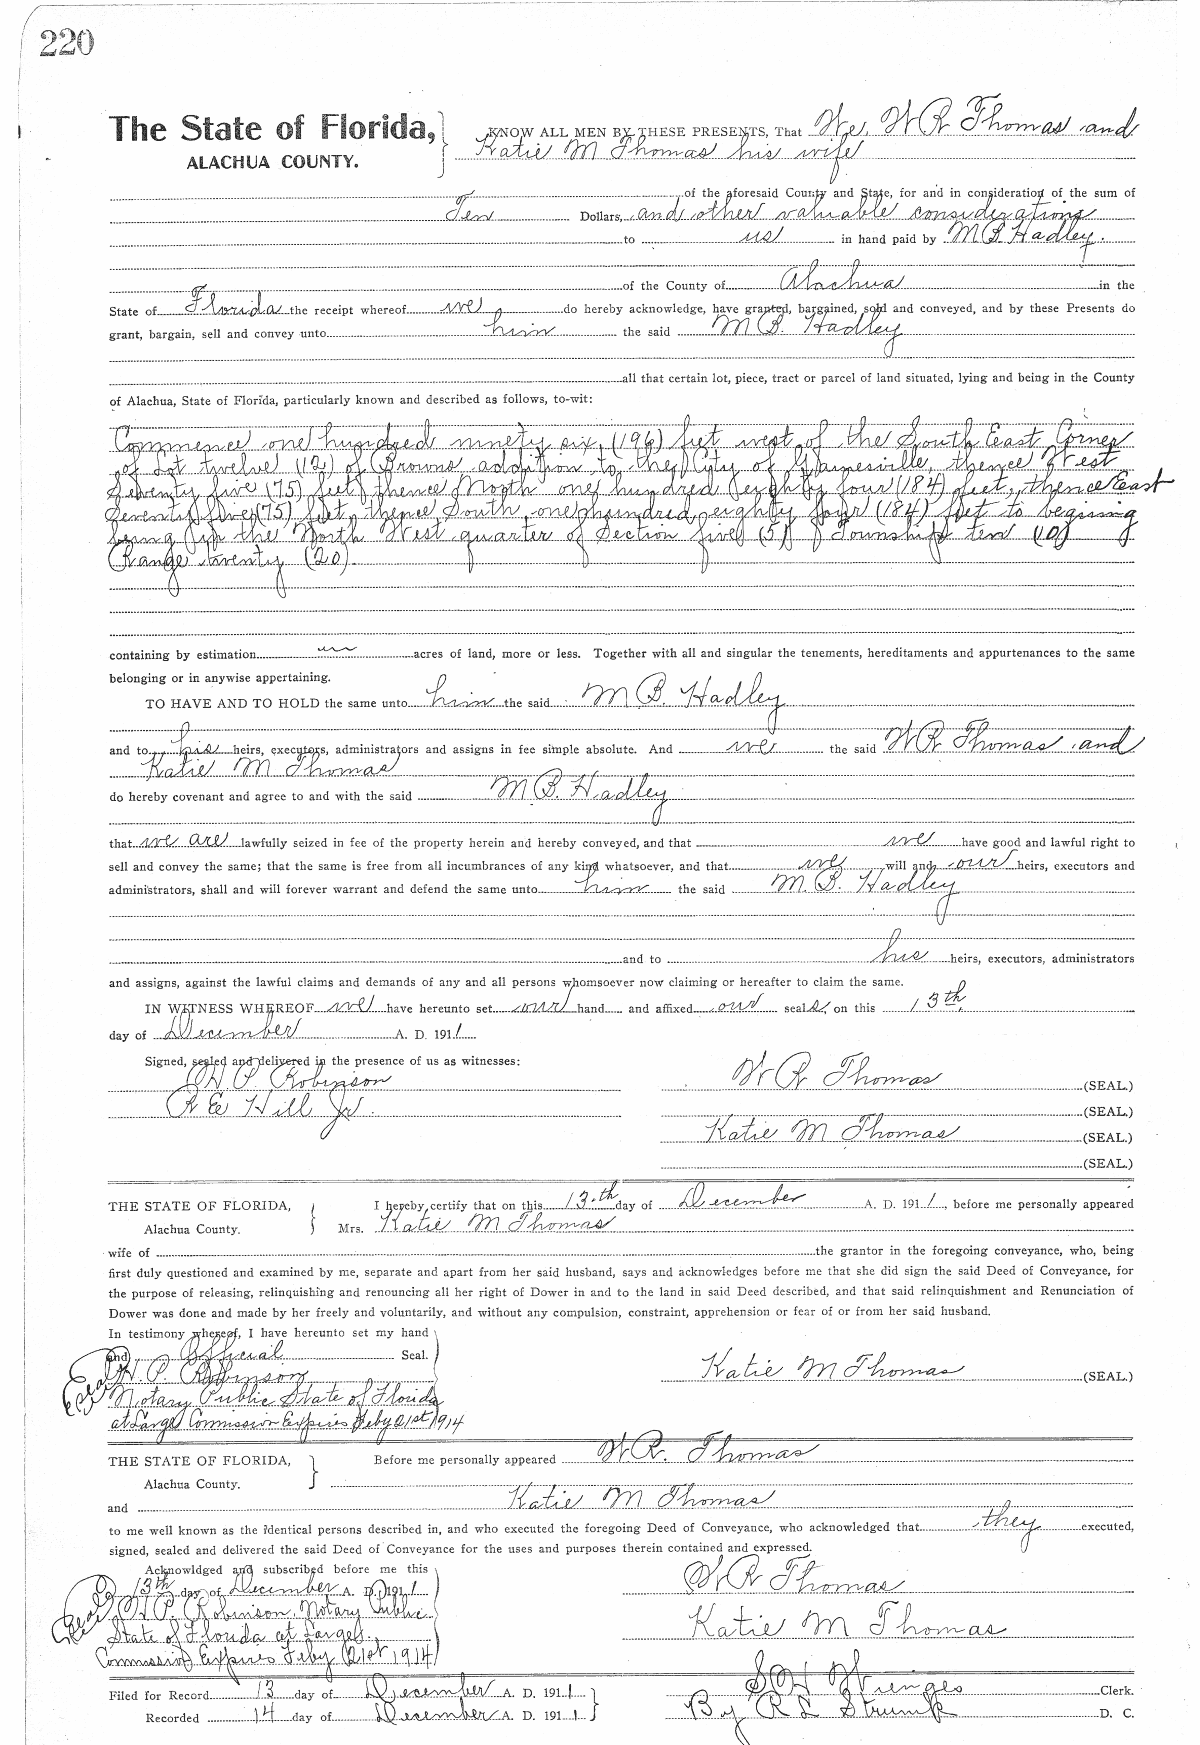 220
The State of Florida,
ALACHUA COUNTY.
KNOW ALL MEN BY THESE PRESENTS, That We, W R Thomas and
Katie M Thomas his wife
of the aforesaid County and State, for and in consideration of the sum of
Ten Dollars, and other valuable considerations
to us in hand paid by M B Hadley.
of the County of Alachua in the
State of Florida the receipt whereof we do hereby acknowledge, have granted, bargained, sold and conveyed, and by these Presents do
grant, bargain, sell and convey unto him the said M B. Hadley
all that certain lot, piece, tract or parcel of land situated, lying and being in the County
of Alachua, State of Florida, particularly known and described as follows, to-wit:
Commence one hundred ninety six (196) feet west of the South East Corner
of Lot twelve (12) of Browns addition to the City of Gainesville, thence West
Seventy five (75) feet, thence North one hundred eighty four (184) feet, thence East
Seventy five (75) feet, thence South one hundred eighty four (184) feet to begining
being in the North West quarter of Section five (5) Township ten (10)
Range twenty (20).
containing by estimation acres of land, more or less. Together with all and singular the tenements, hereditaments and appurtenances to the same
belonging or in anywise appertaining.
TO HAVE AND TO HOLD the same unto him the said M B. Hadley
and to his heirs, executors, administrators and assigns in fee simple absolute. And we the said W R Thomas and
Katie M Thomas
do hereby covenant and agree to and with the said M B. Hadley
that we are lawfully seized in fee of the property herein and hereby conveyed, and that we have good and lawful right to
sell and convey the same; that the same is free from all incumbrances of any kind whatsoever, and that we will and our heirs, executors and
administrators, shall and will forever warrant and defend the same unto him the said M. B. Hadley
and to his heirs, executors, administrators
and assigns, against the lawful claims and demands of any and all persons whomsoever now claiming or hereafter to claim the same.
IN WITNESS WHEREOF we have hereunto set our hand and affixed our seals, on this 13th
day of December A. D. 1911
Signed, sealed and delivered in the presence of us as witnesses:
P. Robinson W R Thomas (SEAL.)
R E Hill Jr. (SEAL.)
Katie M Thomas (SEAL.)
(SEAL.)
THE STATE OF FLORIDA,
Alachua County.
I hereby certify that on this 13th day of December A. D. 1911, before me personally appeared
Mrs. Katie M Thomas
wife of the grantor in the foregoing conveyance, who, being
first duly questioned and examined by me, separate and apart from her said husband, says and acknowledges before me that she did sign the said Deed of Conveyance, for
the purpose of releasing, relinquishing and renouncing all her right of Dower in and to the land in said Deed described, and that said relinquishment and Renunciation of
Dower was done and made by her freely and voluntarily, and without any compulsion, constraint, apprehension or fear of or from her said husband.
In testimony whereof, I have hereunto set my hand
and Official Seal.
Seal P. Robinson Katie M Thomas (SEAL.)
Notary Public State of Florida
at Large Commission Expires Feby 21st 1914
THE STATE OF FLORIDA,
Alachua County.
Before me personally appeared W R. Thomas
and Katie M Thomas
to me well known as the identical persons described in, and who executed the foregoing Deed of Conveyance, who acknowledged that they executed,
signed, sealed and delivered the said Deed of Conveyance for the uses and purposes therein contained and expressed.
Acknowldged and subscribed before me this
13th day of December A. D. 1911 W R Thomas
Seal P. Robinson, Notary Public
State of Florida at Large. Katie M Thomas
Commission Expires Feby 21st 1914
Filed for Record 13 day of December A. D. 1911 S H Wienges Clerk.
Recorded 14 day of December A. D. 1911 By R L Strump D. C.